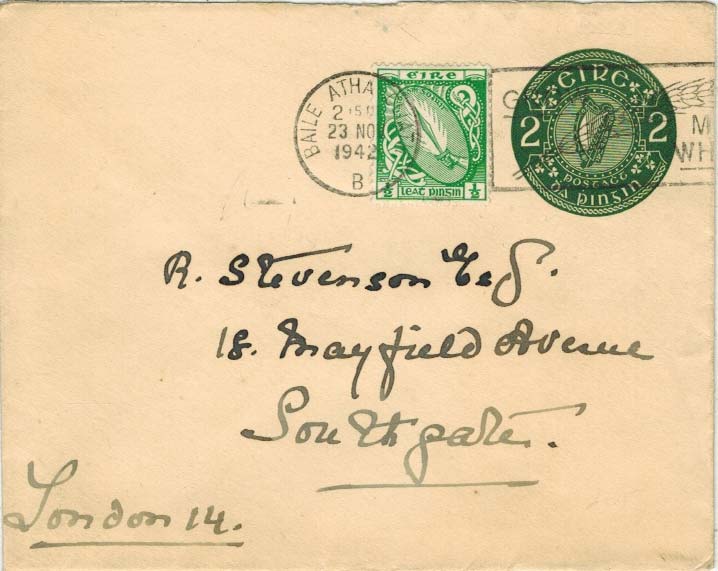 BAILE ATHA
2 15
23 NO
1942
B
ÉIRE
½ LEAṪ PINGIN ½
G M
WH
ÉIRE
2 2
POSTAGE
DÁ PINGIN
R. Stevenson Esq.
18. Mayfield Avenue
Southgate.
London 14.